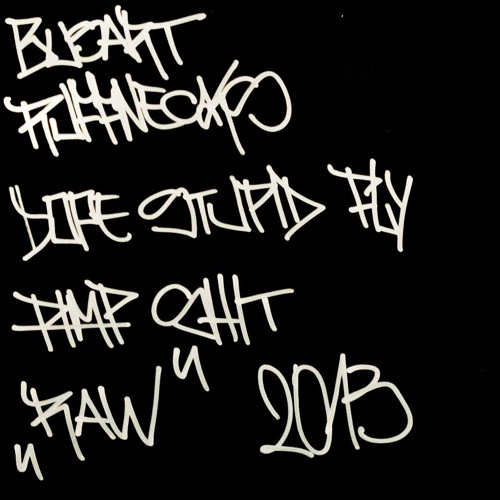 RUFFNECKS
DOPE STUPID FLY
PIMP SHIT
"RAW" 2013